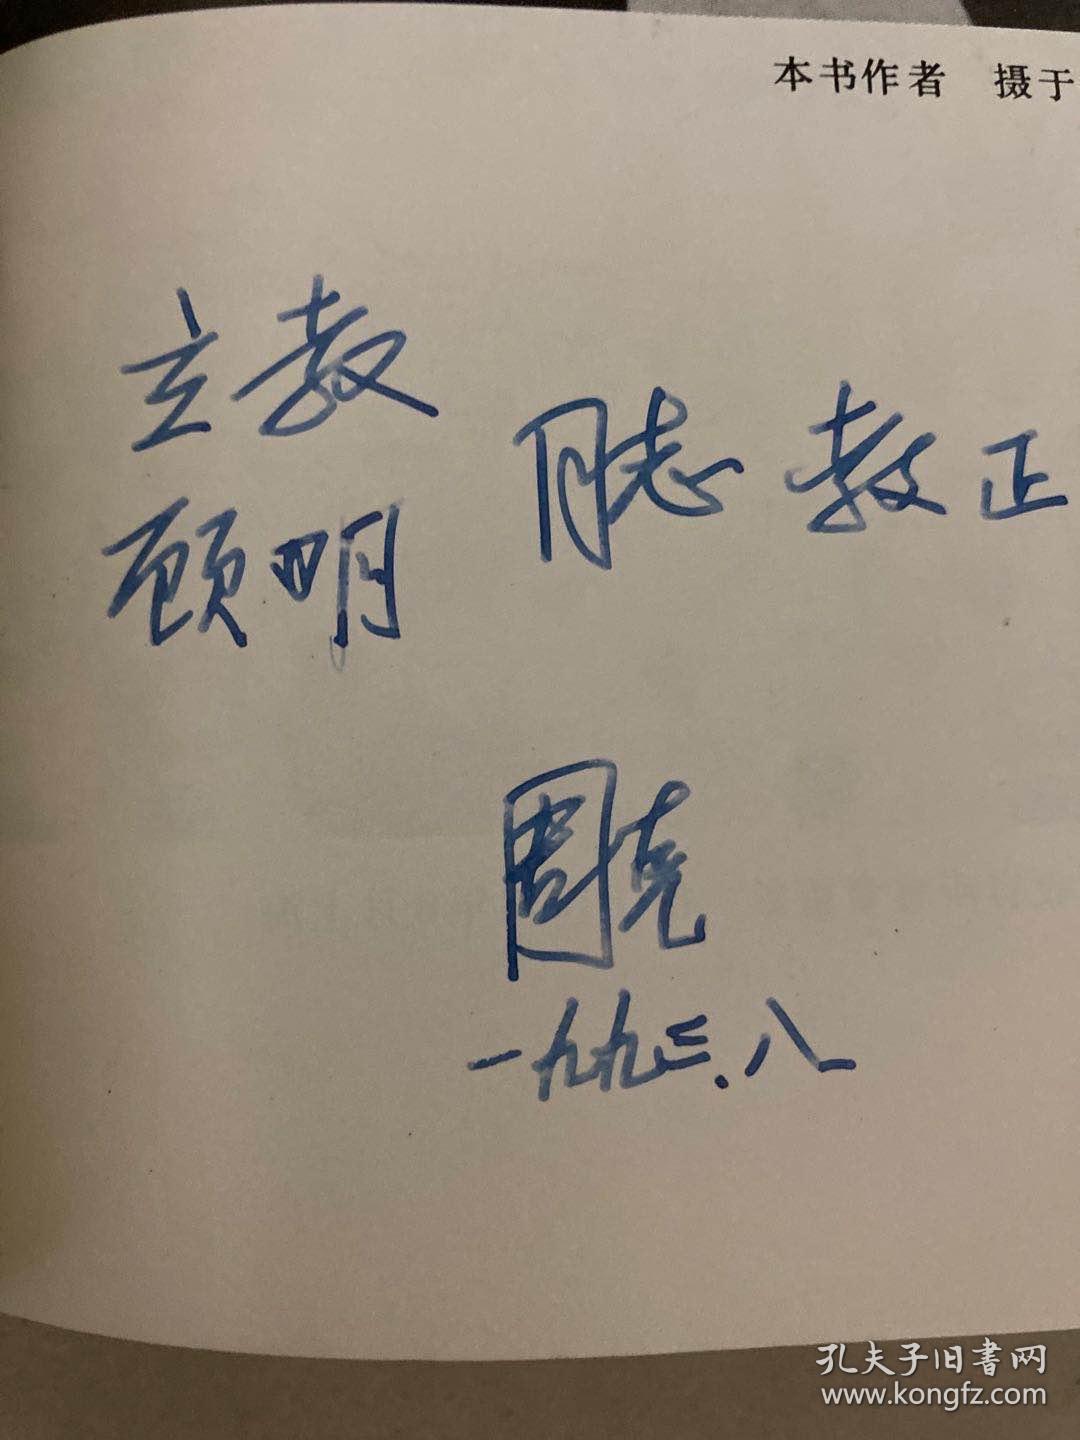 本书作者 摄于
立教
顾明
同志 教正
周克
一九九三.八
孔夫子旧書网
www.kongfz.com